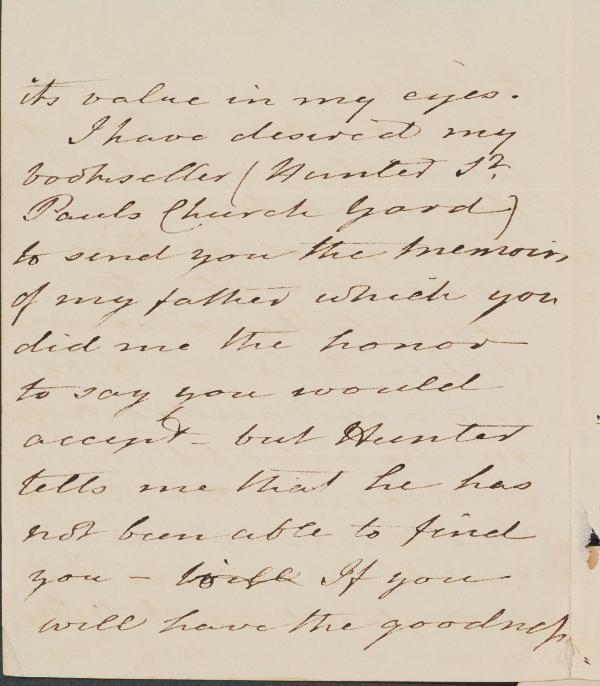 its value in my eyes.
I have desired my
bookseller (Hunter St.
Pauls Church Yard)
to send you the memoirs
of my father which you
did me the honor
to say you would
accept - but Hunter
tells me that he has
not been able to find
you - If you
will have the goodness